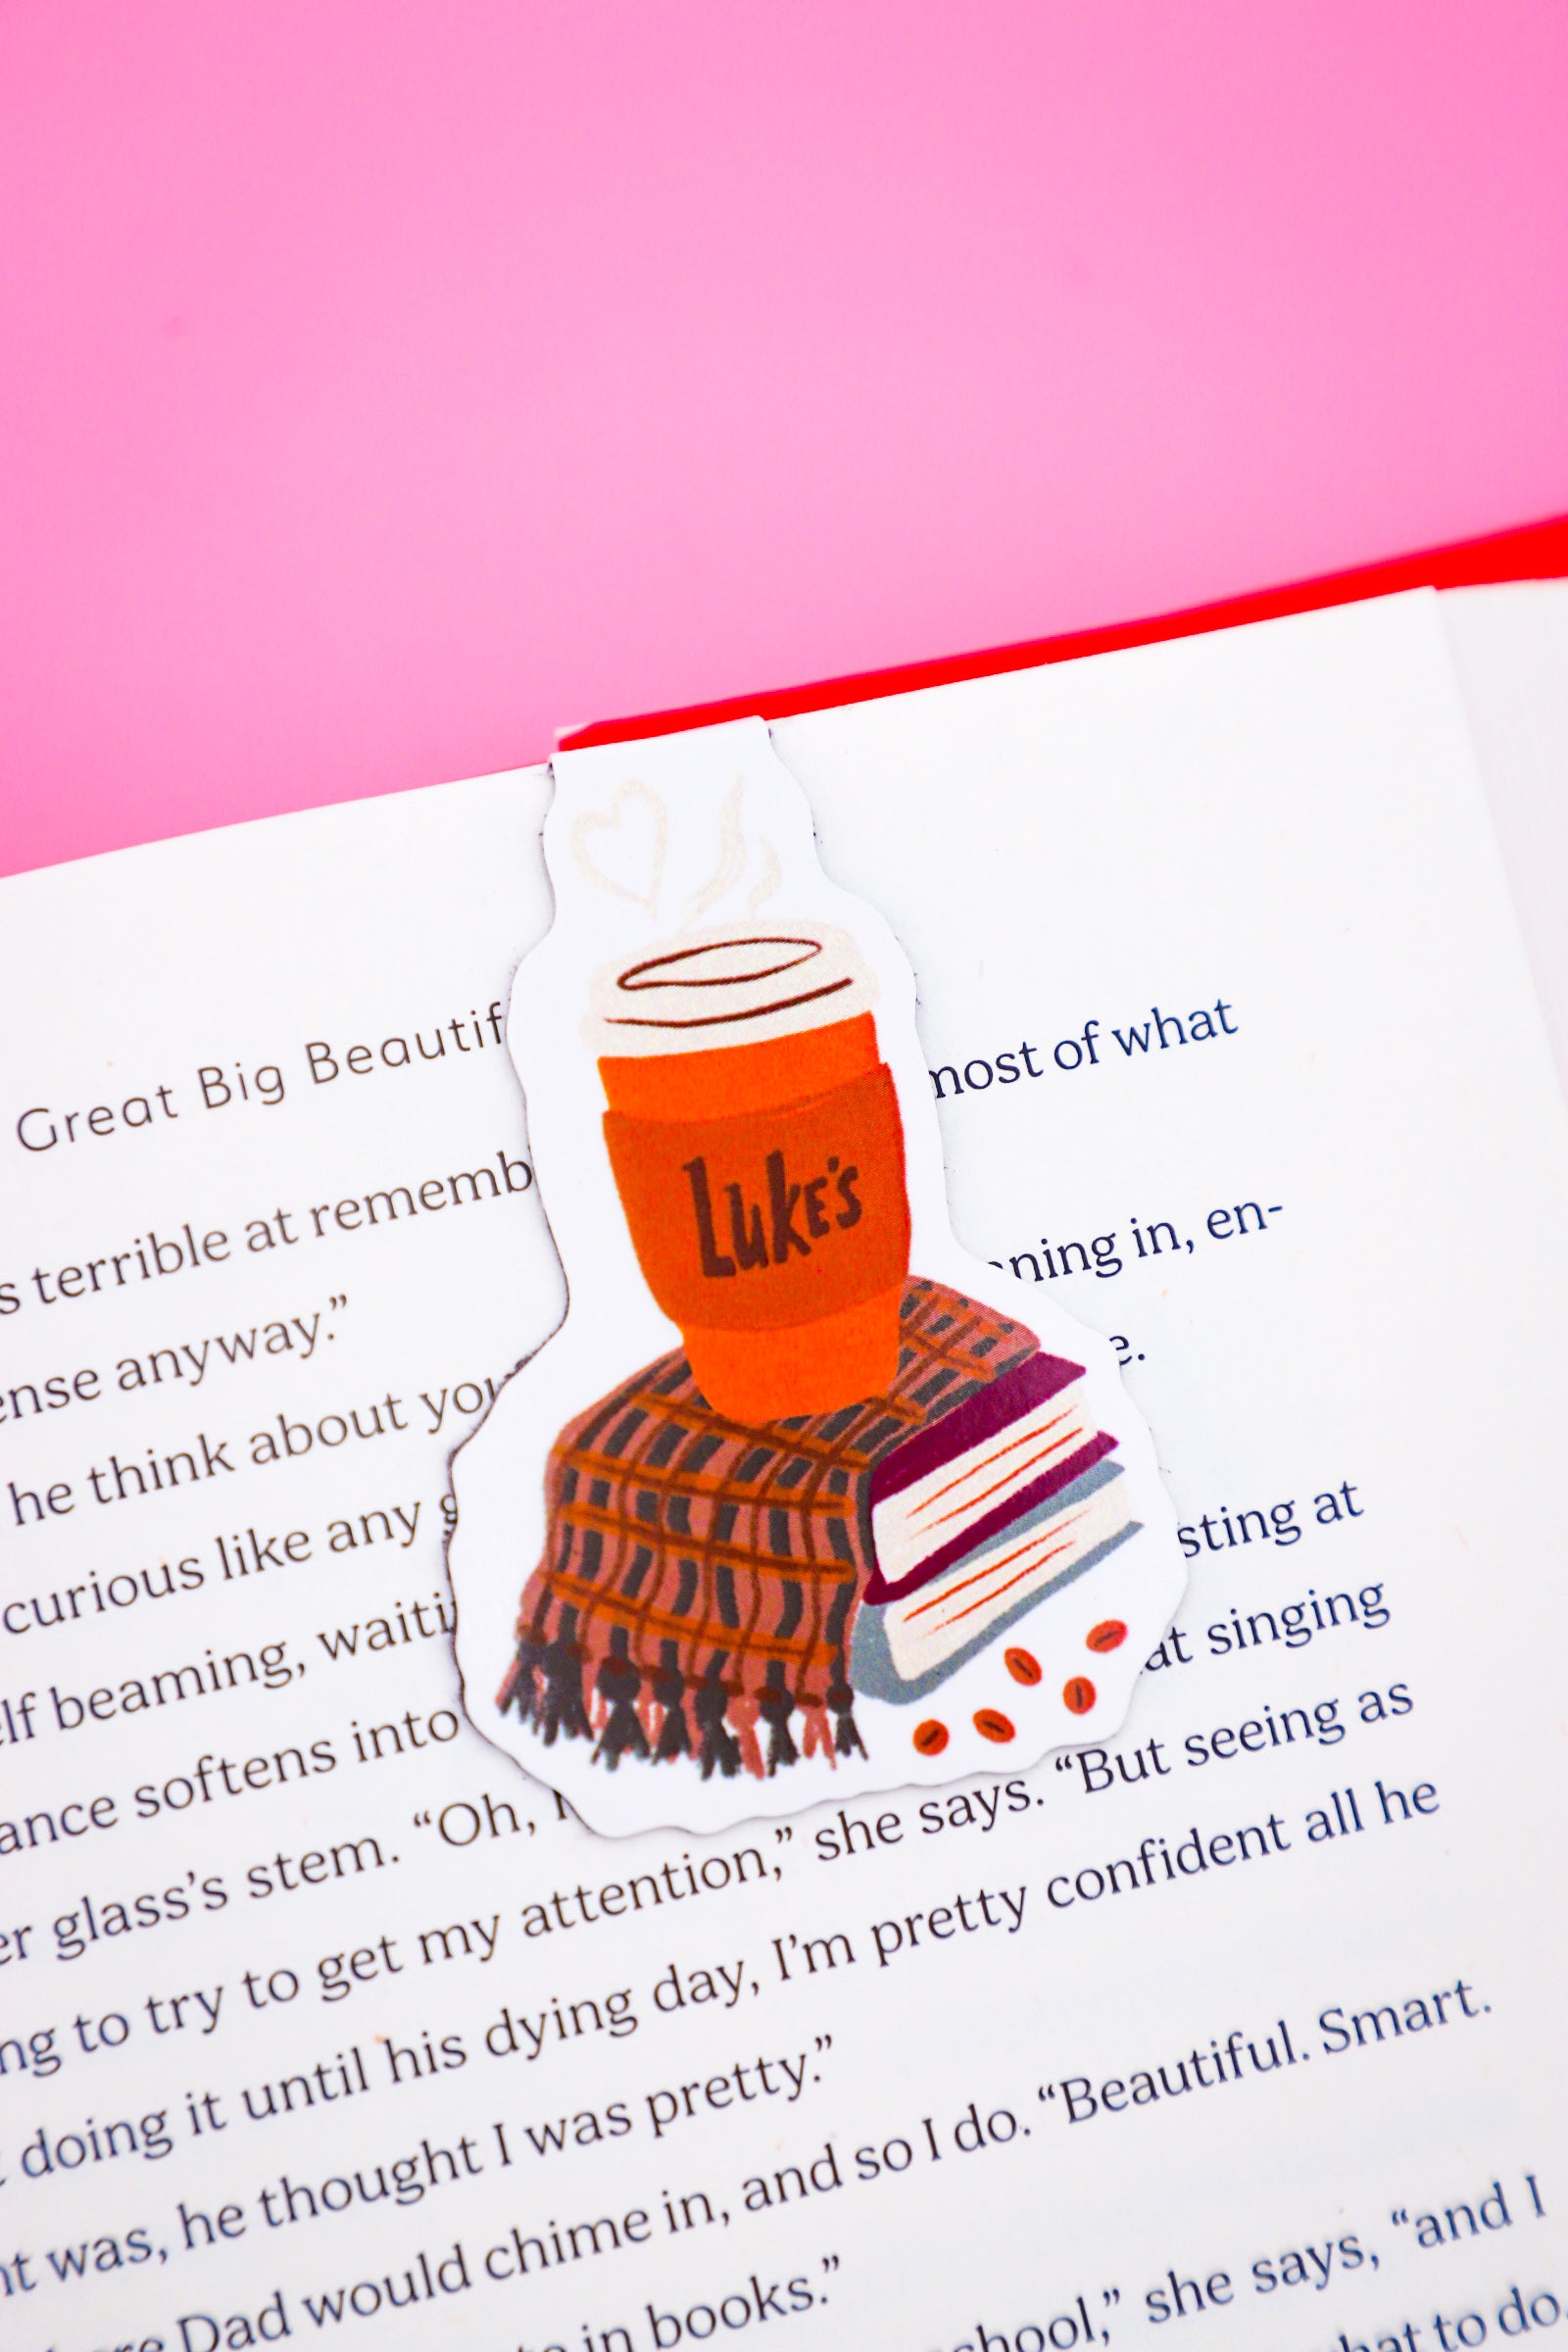 Great Big Beautif
Luke's
most of what
s terrible at rememb
ning in, en-
ense anyway.”
e.
he think about you
curious like any
sting at
elf beaming, waiti
at singing
ance softens into
er glass’s stem. “Oh,
“But seeing as
ng to try to get my attention,” she says.
doing it until his dying day, I’m pretty confident all he
nt was, he thought I was pretty.”
Dad would chime in, and so I do. “Beautiful. Smart.
in books.”
chool,” she says, “and I
hat to do.